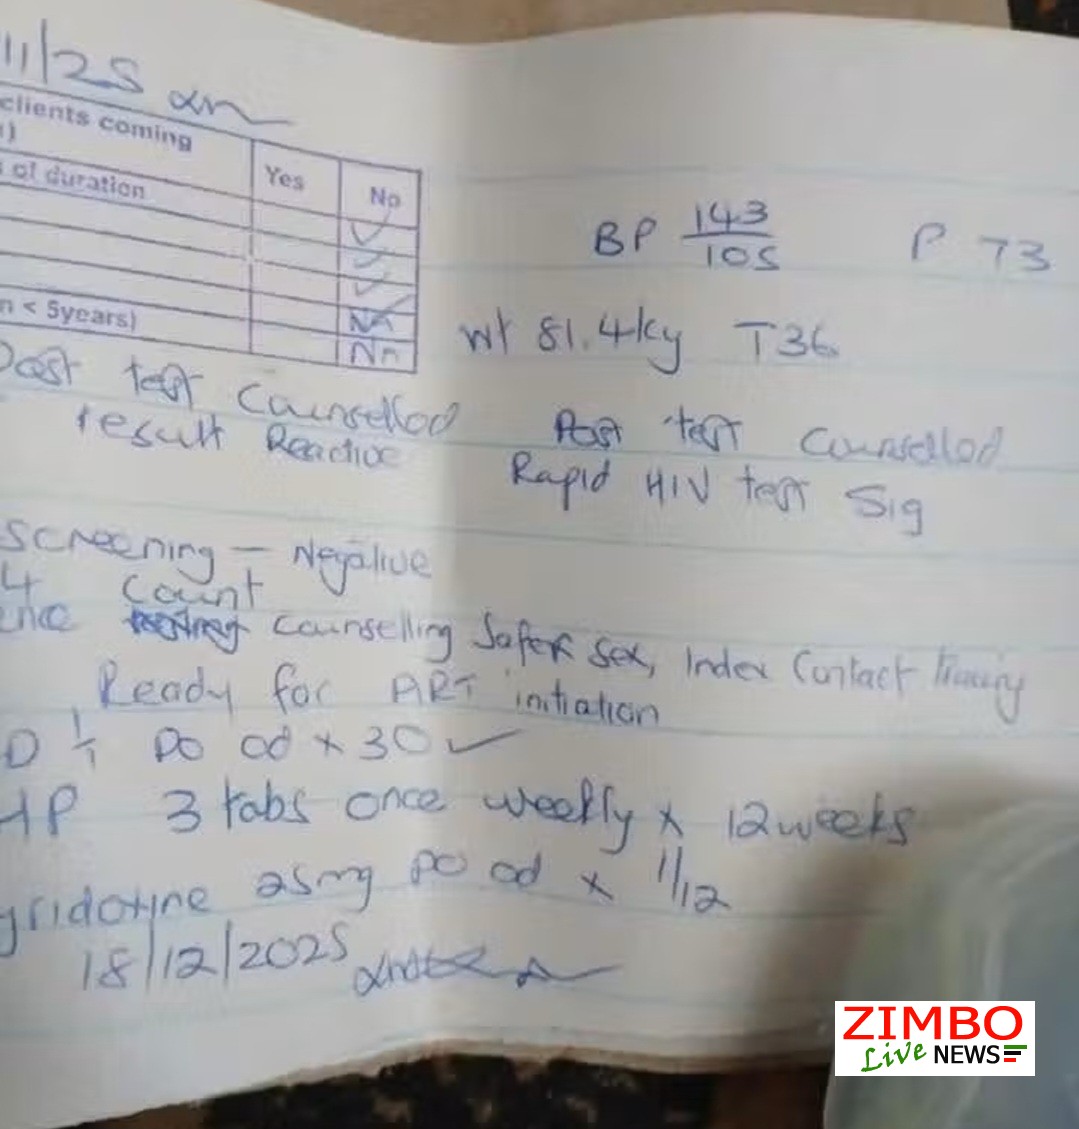 11/25
clients coming
Yes No
of duration
n < 5years)
NA
BP 143/105 P 73
wt 81.4kg T36
Post test Counselled
result Reactive
Post test Counselled
Rapid HIV test Sig
Screening - Negative
4 Count
ence counselling Safer Sex, Index Contact tracing
Ready for ART initiation
D 1/1 po od x 30
HP 3 tabs once weekly x 12 weeks
yridoxine 25mg po od x 1/12
18/12/2025
ZIMBO
Live NEWS